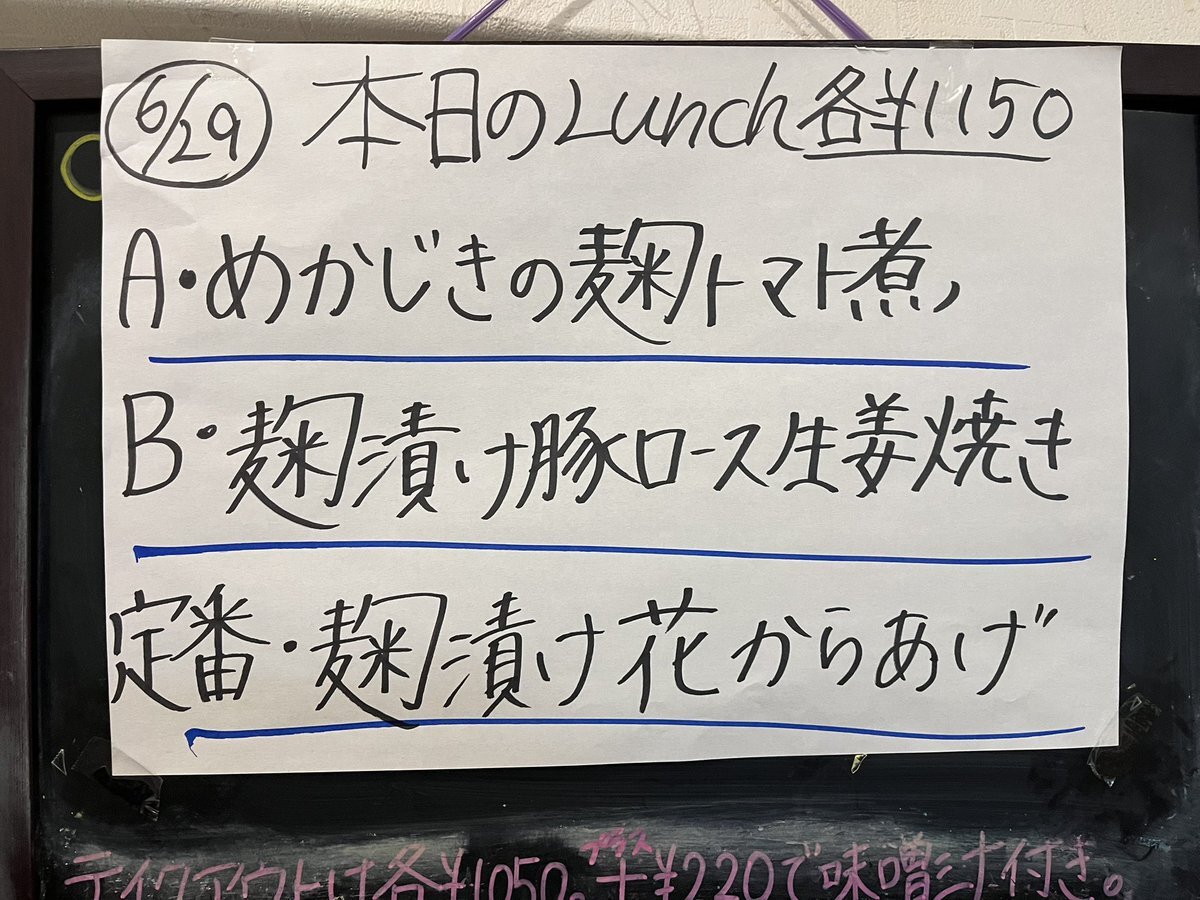 6/29 本日のLunch各¥1150
A・めかじきの麹トマト煮
B・麹漬け豚ロース生姜焼き
定番・麹漬け花からあげ
プラス
テイクアウトは各¥1050。+¥220で味噌汁付き。